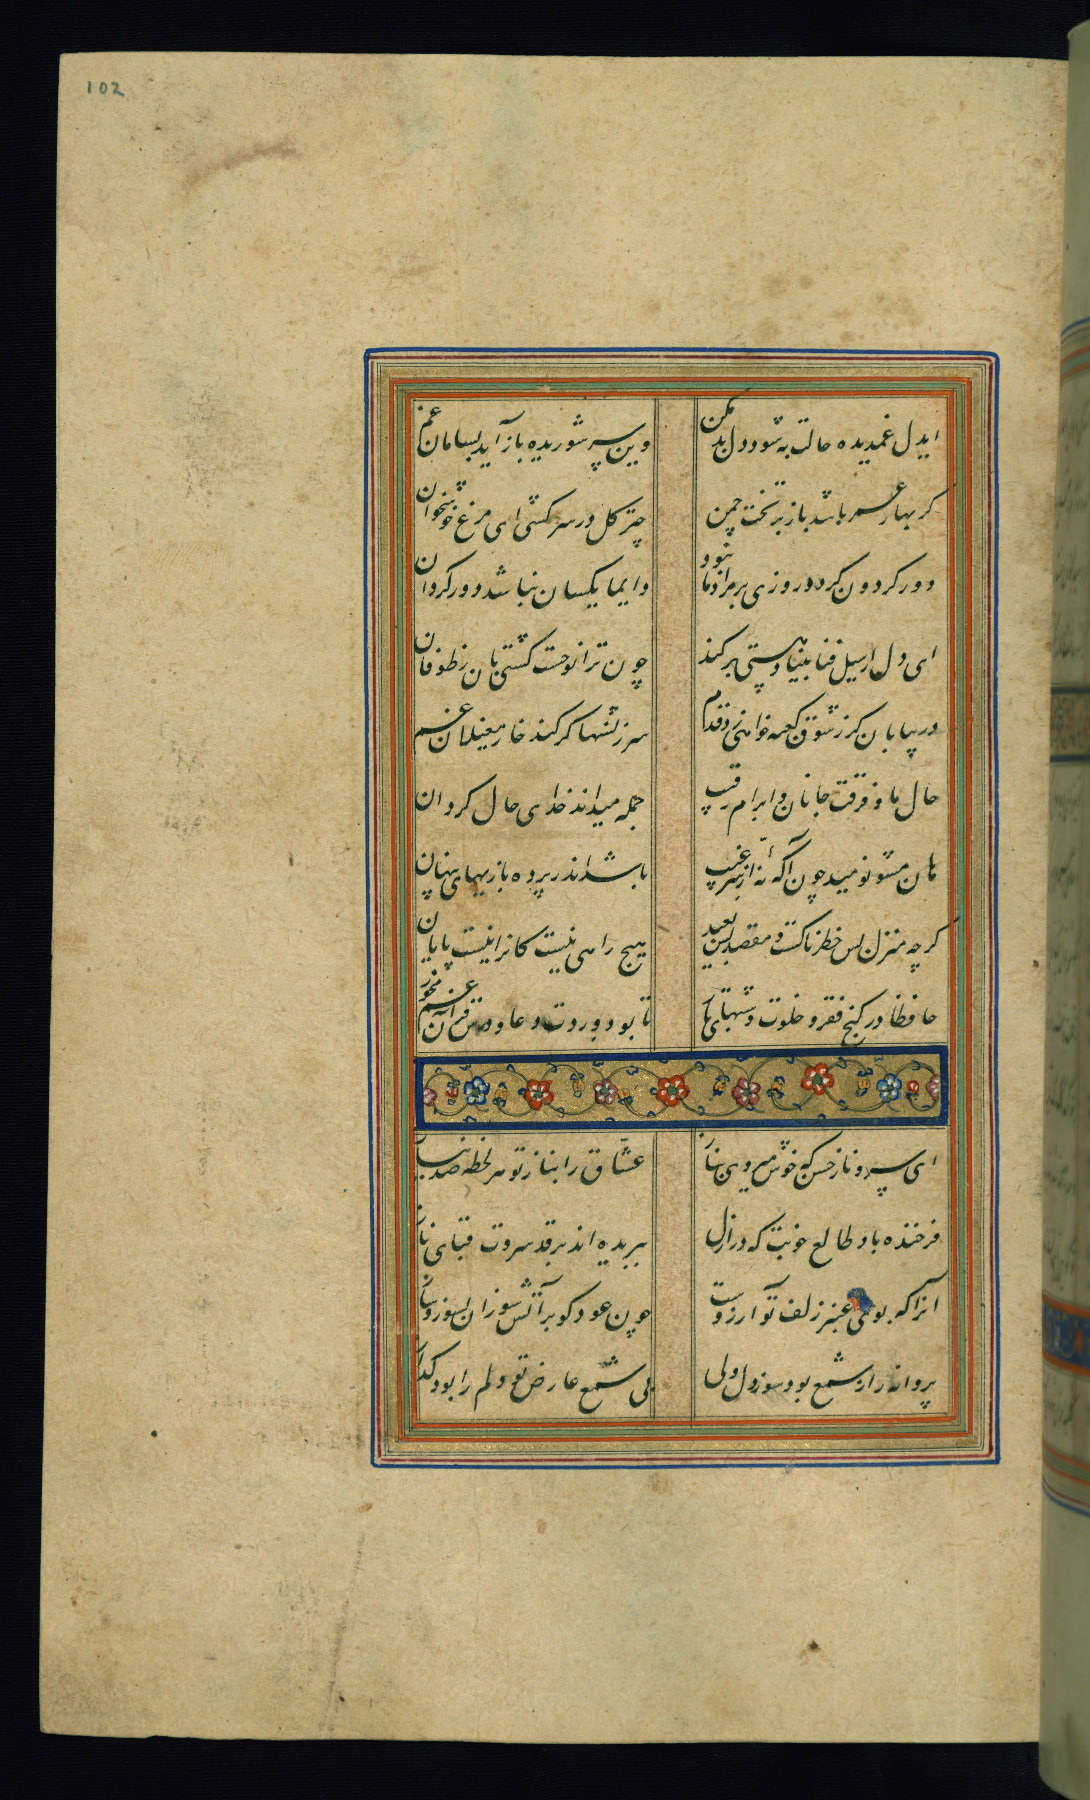 102
ایدل غمدیده حالت به شود دل بد مکن
وین سر شوریده باز آید بسامان غم
گر بهار عمر باشد باز بر تخت چمن
چتر گل در سر کشی ای مرغ خوشخوان
دور گردون گر دو روزی بر مراد ما نبود
دایما یکسان نباشد دور گردون
ای دل ار سیل فنا بنیاد هستی برکند
چون ترا نوحست کشتی بان ز طوفان
در بیابان گر ز شوق کعبه خواهی زد قدم
سرزنشها گر کند خار مغیلان غم
حال ما و فرقت جانان و ابرام رقیب
جمله میداند خدای حال گردان
هان مشو نومید چون آگه نه از سر غیب
باشد اندر پرده بازیهای پنهان
گر چه منزل بس خطرناکست و مقصد بس بعید
هیچ راهی نیست کانرا نیست پایان
حافظا در کنج فقر و خلوت شبهای تار
تا بود وردت دعا و درس قرآن غم مخور
ای سرو ناز حسن که خوش میروی بناز
عشاق را بناز تو هر لحظه صد نیاز
فرخنده باد طالع خوبت که در ازل
ببریده اند بر قد سروت قبای ناز
آنرا که بوی عنبر زلف تو آرزوست
چون عود گو بر آتش سوزان بسوز و ساز
پروانه را ز شمع بود سوز دل ولی
بی شمع عارض تو دلم را بود گداز